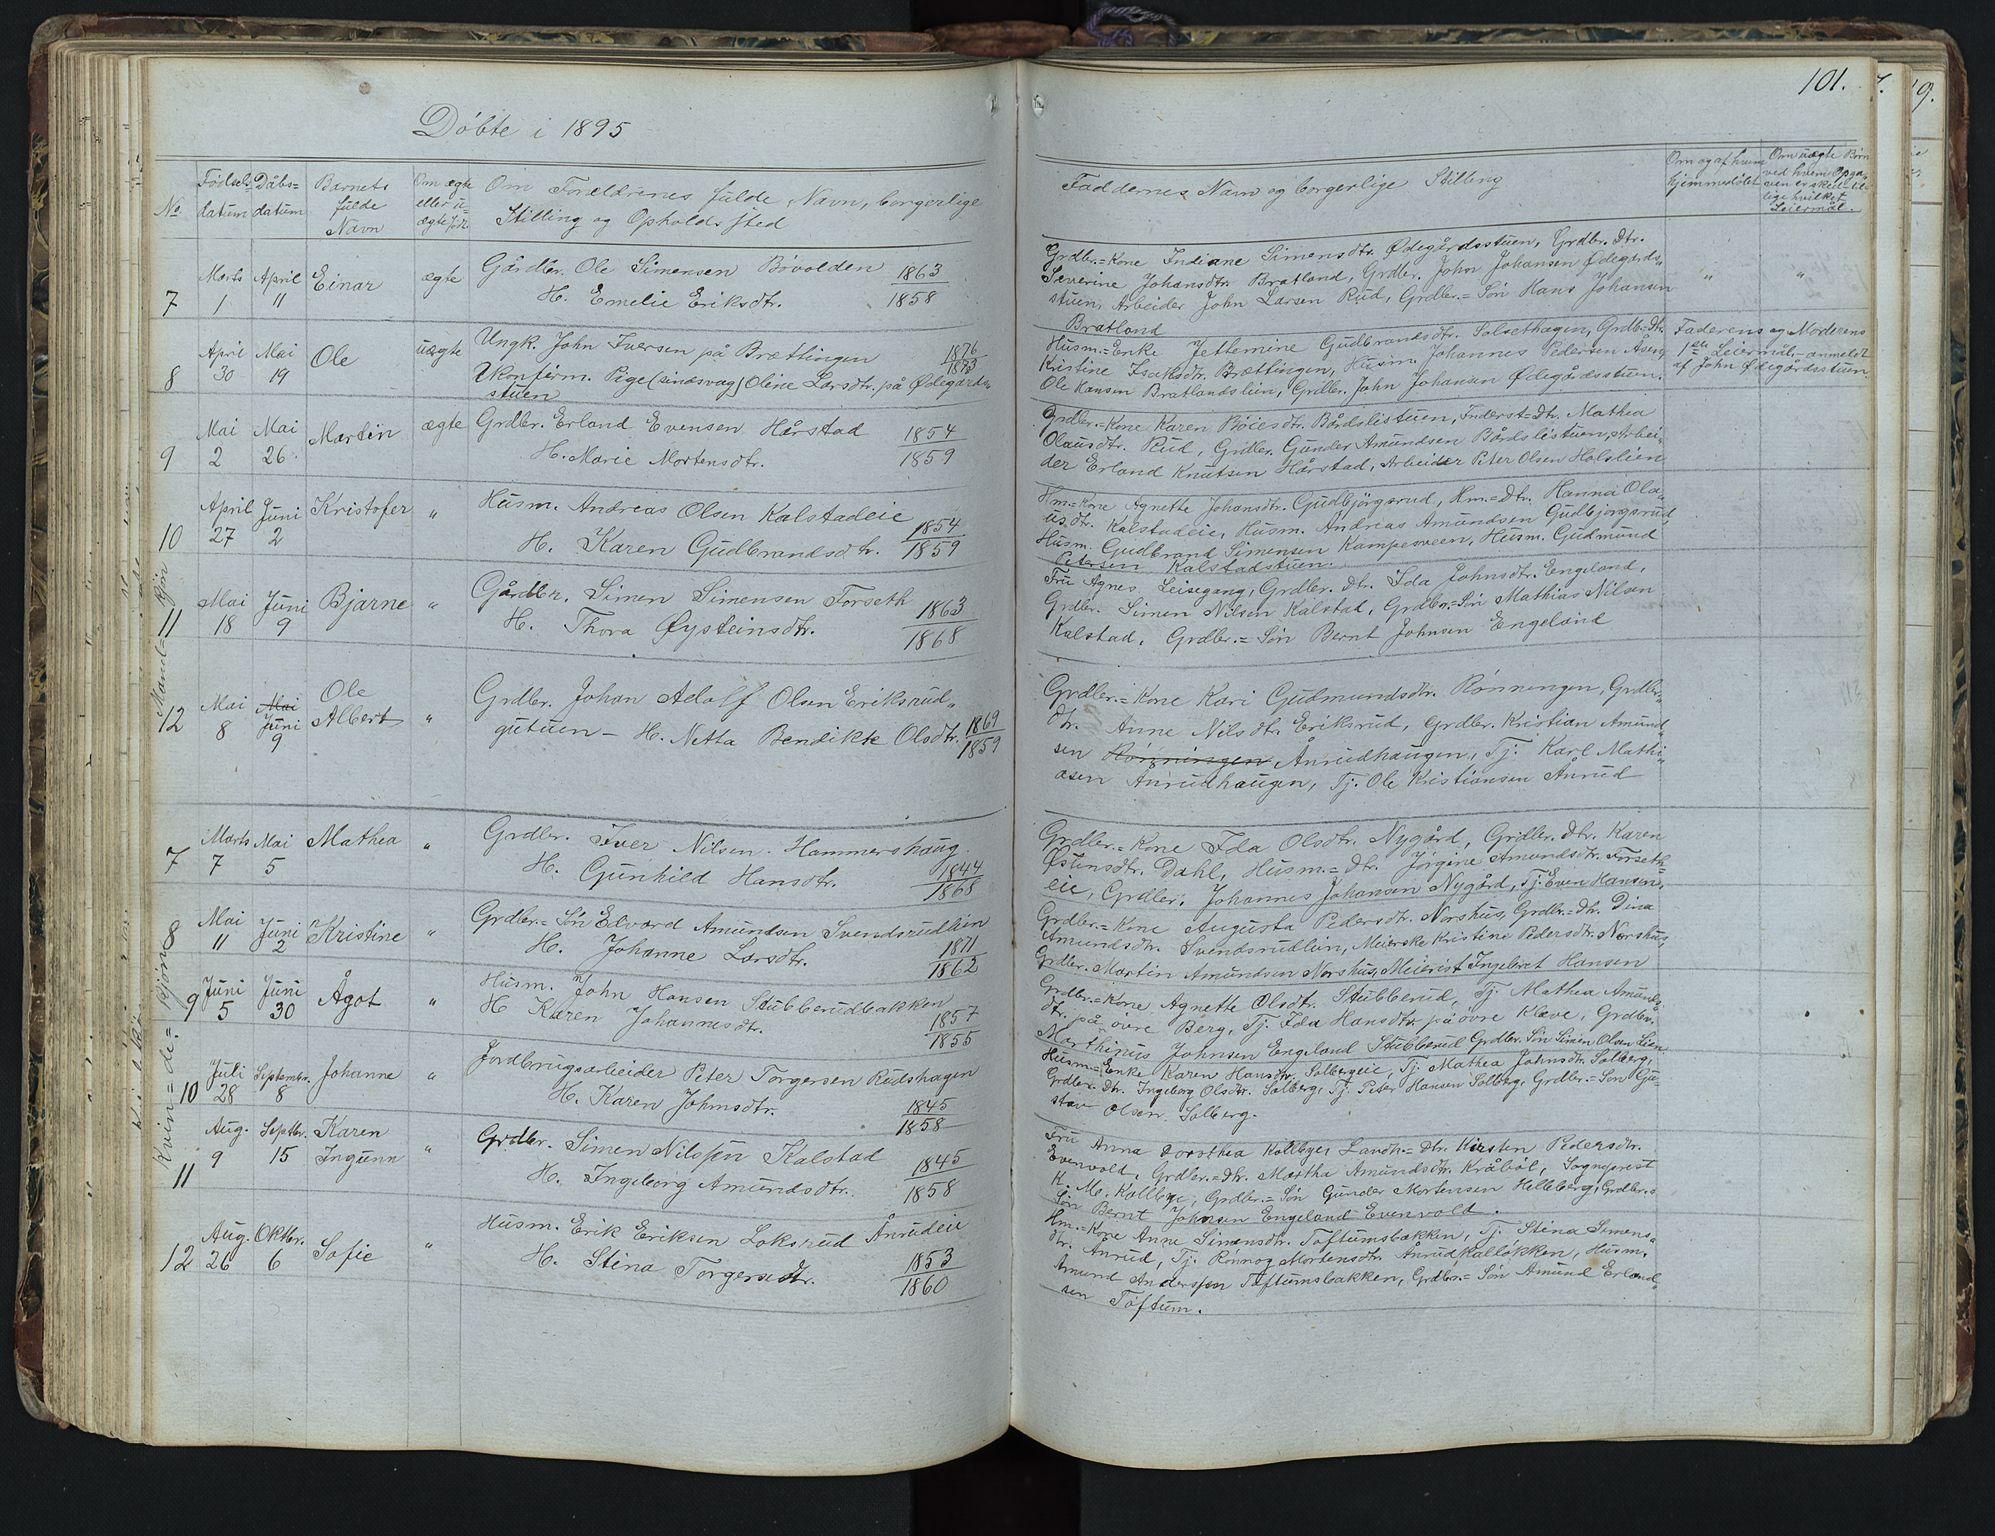 101.
Döbte i 1895
No
Fødsels-
datum
Dåbs-
datum
Barnets
fulde
Navn
Om ægte
eller u-
ægte født
Om Forældrenes fulde Navn, borgerlige
Stilling og Opholdssted
Faddernes Navn og borgerlige Stilling
Om og af hvem
hjemmedøbt
Om uægte Børn
ved hvem Opga-
ven er skeet til-
lige hvilket
Leiermål.
Mand-kjøn
7
Marts
1
April
11
Einar
ægte
Gårdbr. Ole Simensen Bövolden 1863
H. Emelie Eriksdtr. 1858
Grdbr.=Kone Indiane Simensdtr. Ødegårdsstuen, Grdbr. Dtr.
Severine Johansdtr. Bratland, Grdbr. John Johansen Ødegårds-
stuen, Arbeider John Larsen Rud, Grdbr.=Søn Hans Johansen
Bratland
" "
8
April
30
Mai
19
Ole
uægte
Ungk. John Iversen på Brættingen 1876
1873
Ukonfirm. Pige (sindssvag) Oline Larsdtr. på Ødegårds-
stuen
Husm.=Enke Jettemine Gudbrandsdtr. Solsethagen, Grdb.=Dtr.
Kristine Isaksdtr. Brættingen, Husm. Johannes Pedersen Åsen,
Ole Hansen Bratlandslien, Grdbr. John Johansen Ødegårdsstuen.
Faderens og Moderens
1en Leiermål, anmeldt
af John Ødegårdsstuen.
9
Mai
2
Mai
26.
Martin
ægte
Grdbr. Erland Evensen Hårstad 1854
H. Marie Mortensdtr. 1859
Grdbr.=Kone Karen Böcesdtr. Bårdslistuen, Inderst=Dtr. Mathea
Olausdtr. Rud, Grdbr. Gunder Amundsen Bårdslistuen, Arbei-
der Erland Knutsen Hårstad, Arbeider Peter Olsen Holslien
10
April
27
Juni
2
Kristofer
"
Husm. Andreas Olsen Kalstadeie 1854
H. Karen Gudbrandsdtr. 1859
Hm.=Kone Agnette Johansdtr. Gudbjörgsrud, Hm.=Dtr. Hanna Ola-
usdtr. Kalstadeie, Husm. Andreas Amundsen Gudbjörgsrud,
Husm. Gudbrand Simensen Kampesveen, Husm. Gudmund
Petersen Kalstadstuen.
11
Mai
18
Juni
9
Bjarne
"
Gårdbr. Simen Simensen Forseth 1863
H. Thora Øysteinsdtr. 1868
Fru Agnes Leisegang, Grdbr. Dtr. Ida Johnsdtr. Engeland,
Grdbr. Simen Nilsen Kalstad, Grdbr.=Søn Mathias Nilsen
Kalstad, Grdbr.=Søn Bernt Johnsen Engeland
12
Mai
8
Mai
Juni
9
Ole
Albert
"
Grdbr. Johan Adolf Olsen Eriksrud-
gutuen - H. Netta Bendikke Olsdtr. 1869
1859
Grdbr.=Kone Kari Gudmundsdtr. Rønningen, Grdbr.-
Dtr. Anne Nilsdtr. Eriksrud, Grdbr. Kristian Amund-
sen Rønningen, Ånrudhaugen, Tj. Karl Mathi-
asen Ånrudhaugen, Tj. Ole Kristiansen Ånrud
Kvin=de=kjön
7
Marts
7
Mai
5
Mathea
"
Grdbr. Iver Nilsen Hammershaug.
H. Gunhild Hansdtr. 1844
1868
Grdbr.=Kone Ida Olsdtr. Nygård, Grdbr. Dtr. Karen
Østensdtr. Dahl, Husm.=Dtr. Jörgine Amundsdtr. Forseth-
eie, Grdbr. Johannes Johansen Nygård, Tj. Even Hansen.
8
Mai
11
Juni
2
Kristine
"
Grdbr.=Søn Edvard Amundsen Svendsrudlien
H. Johanne Larsdtr. 1871
1862
Grdbr.=Kone Augusta Pedersdtr. Norshus, Grdbr.=Dtr. Dina
Amundsdtr. Svendsrudlien, Meierske Kristine Pedersdtr. Norshus
Grdbr. Martin Amundsen Norshus, Meierist Ingebret Hansen
9
Juni
5
Juni
30
Ågot
"
Husm. John Hansen Stubberudbakken
H Karen Johannesdtr. 1857
1855
Grdbr.=Kone Agnette Olsdtr. Stubberud, Tj. Mathea Amunds-
dtr. på övre Berg, Tj. Ida Hansdtr. på övre Kleve, Grdbr.
Marthinus Johnsen Engeland Stubberud Grdbr. Søn Simen Olsen Lien
10
Juli
28
Septembr.
8
Johanne
"
Jordbrugsarbeider Peter Torgersen Rudshagen
H. Karen Johnsdtr. 1845
1858
Husm.=Enke Karen Hansdtr. Solbergeie, Tj. Mathea Johnsdtr. Solberg,
Grdbr. Dtr. Ingeborg Olsdtr. Solberg, Tj. Peter Hansen Solberg, Grdbr.=Søn Gu-
stav Olsen Solberg.
11
Aug.
9
Septbr.
15
Karen
Ingunn
"
Grdbr. Simen Nilssen Kalstad
H. Ingeborg Amundsdtr. 1845
1858
Fru Anna Dorothea Kolbye, Landh=Dtr. Kirsten Pedersdtr.
Evenvold, Grdbr.=Dtr. Martha Amundsdtr. Kråböl, Sogneprest
K. M. Kolbye, Grdbr.=Søn Gunder Mortensen Helleberg, Grdbr.=
Søn Bernt Johnsen Engeland Evenvold.
12
Aug.
26
Oktbr.
6
Sofie
"
Husm. Erik Eriksen Loksrud Ånrudeie
H. Stina Torgersdtr. 1853
1860
Hm.=Kone Anne Simensdtr. Töftumsbakken, Tj. Stina Simens-
dtr. Anrud, Tj. Rönnog Mortensdtr. Ånrudkallökken, Husm.
Amund Anderssen Töftumsbakken, Grdbr.=Søn Amund Erland-
sen Töftum.